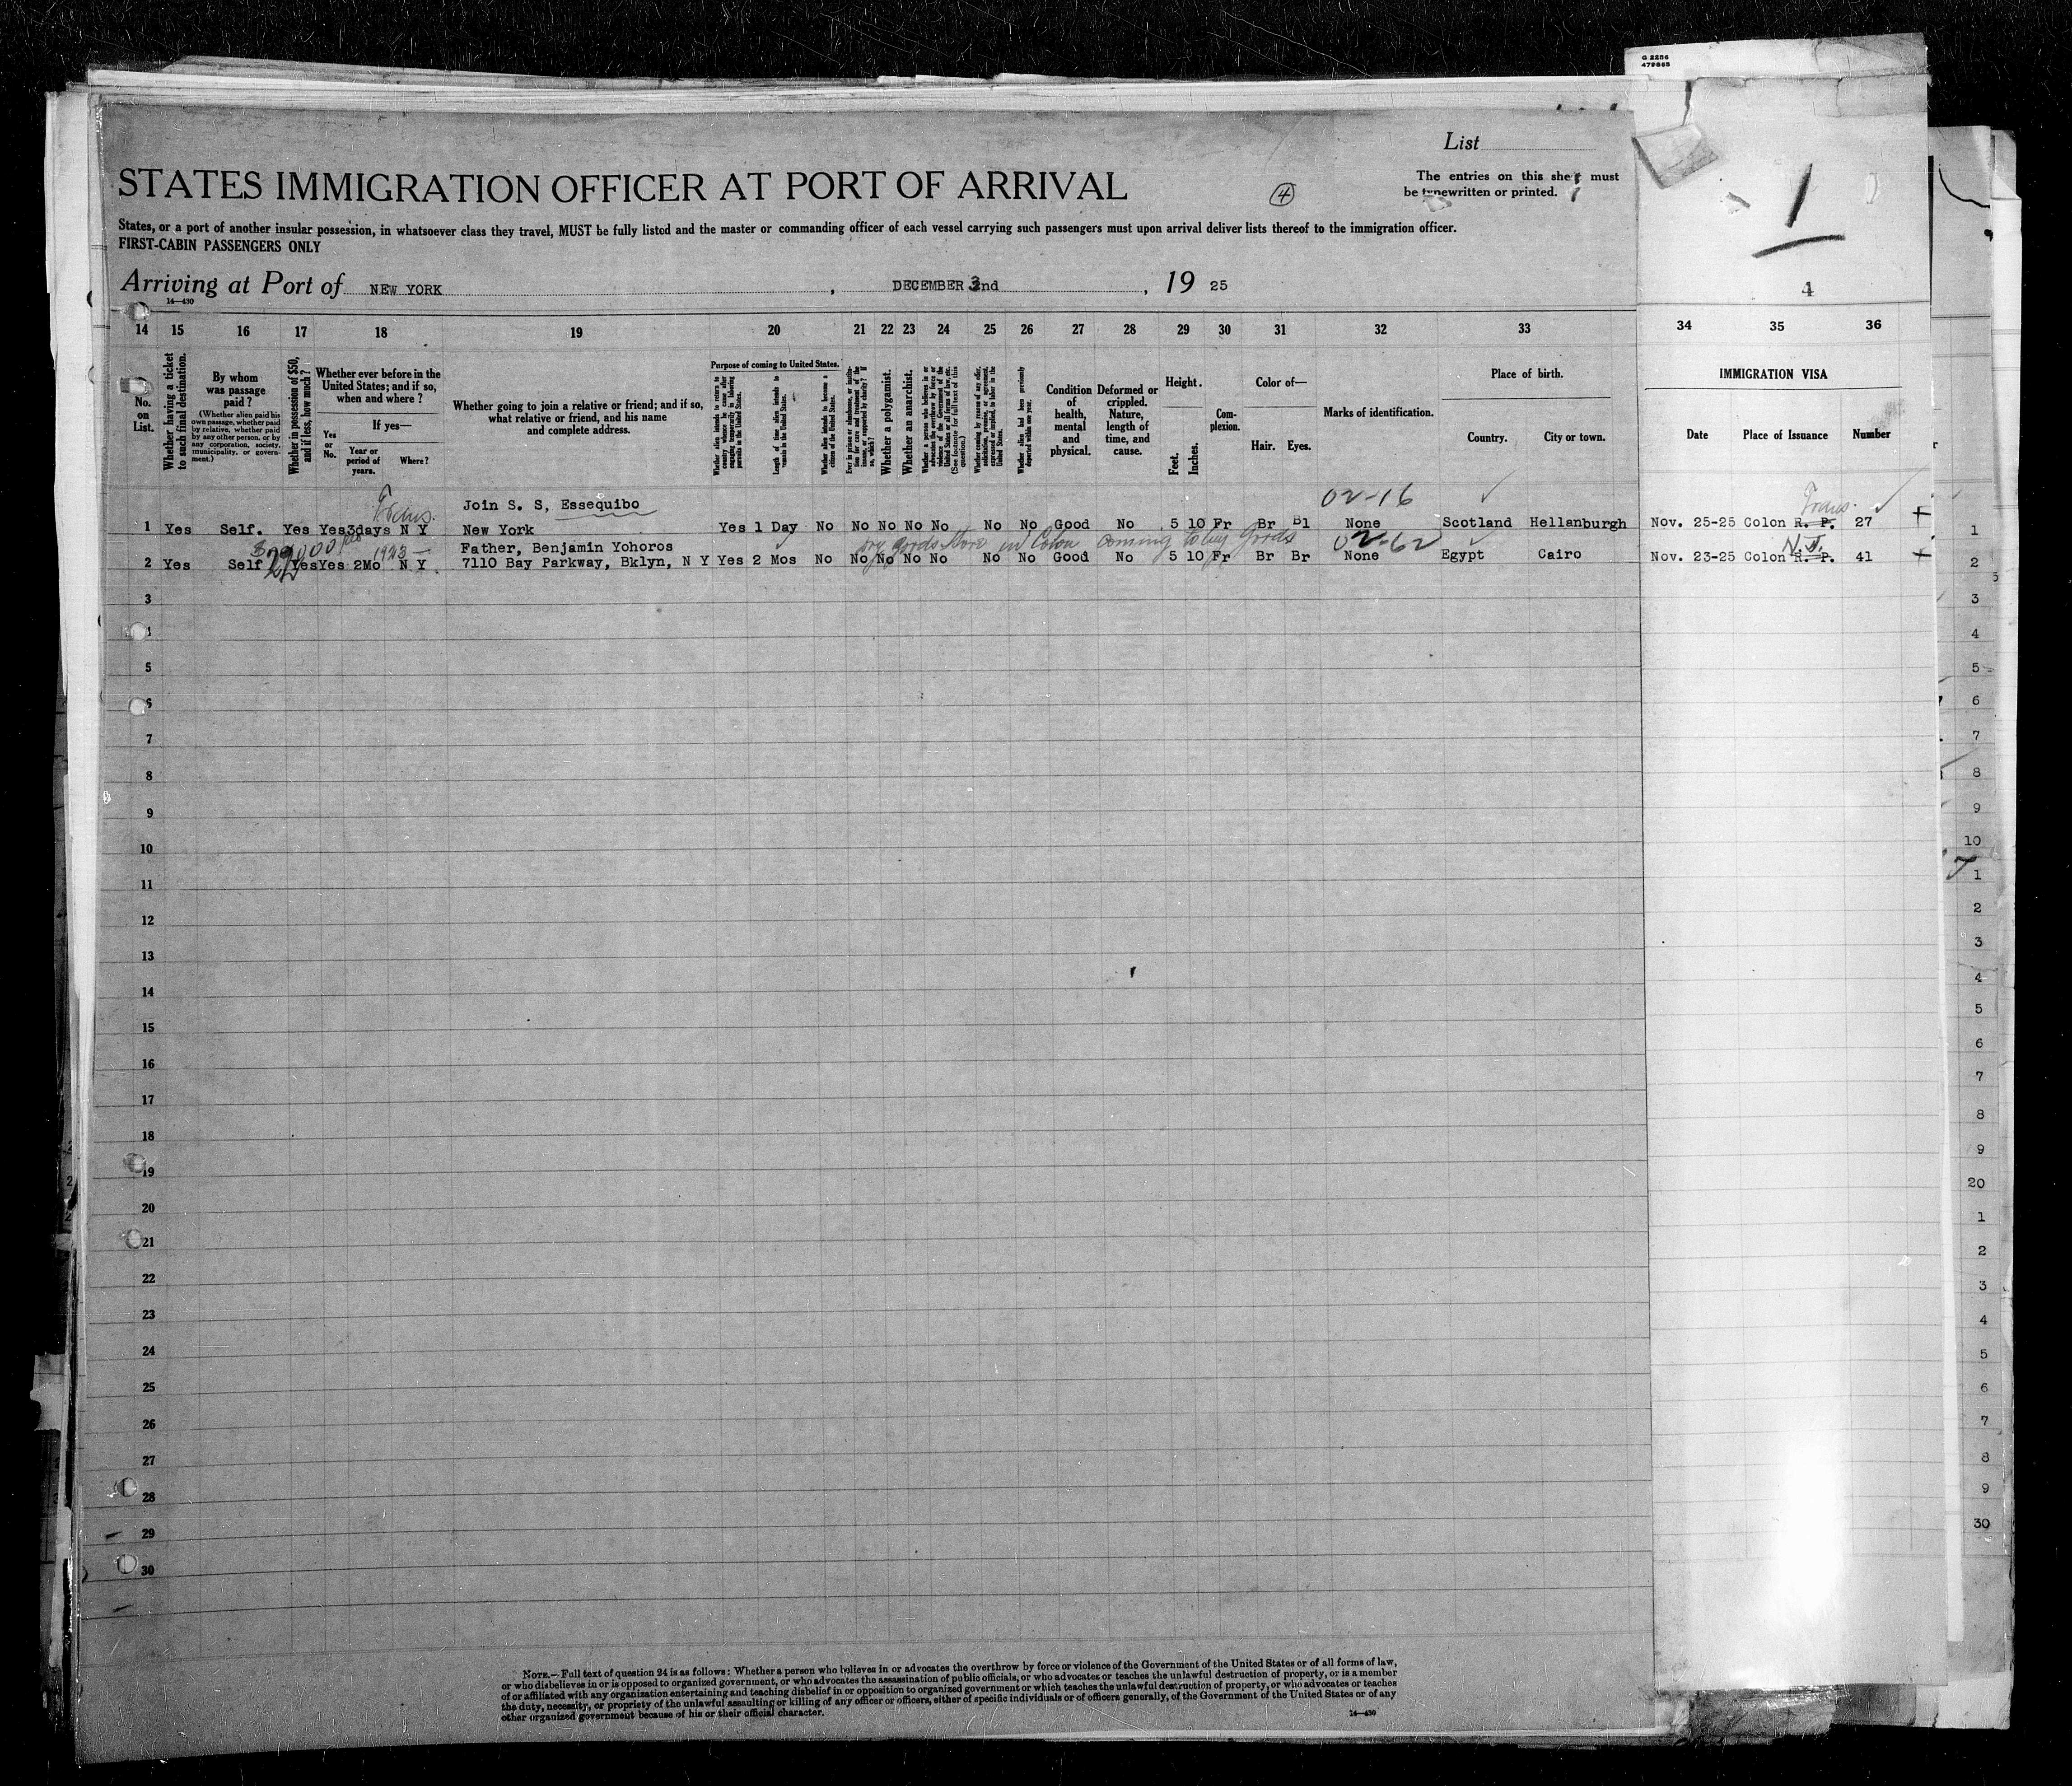 G 2256
479865
List
STATES IMMIGRATION OFFICER AT PORT OF ARRIVAL
4
The entries on this sheet must
be typewritten or printed.
1
States, or a port of another insular possession, in whatsoever class they travel, MUST be fully listed and the master or commanding officer of each vessel carrying such passengers must upon arrival deliver lists thereof to the immigration officer.
FIRST-CABIN PASSENGERS ONLY
Arriving at Port of NEW YORK, DECEMBER 3nd, 19 25
14—430
4
14 15 16 17 18 19 20 21 22 23 24 25 26 27 28 29 30 31 32 33 34 35 36
No. on List.
Whether having a ticket to such final destination.
By whom was passage paid?
(Whether alien paid his own passage, whether paid by relative, whether paid by any other person, or by any corporation, society, municipality, or government.)
Whether in possession of $50, and if less, how much?
Whether ever before in the United States; and if so, when and where?
Yes or No.
If yes—
Year or period of years.
Where?
Whether going to join a relative or friend; and if so, what relative or friend, and his name and complete address.
Purpose of coming to United States.
Whether alien intends to return to country whence he came after engaging temporarily in laboring pursuits in the United States.
Length of time alien intends to remain in the United States.
Whether alien intends to become a citizen of the United States.
Ever in prison or almshouse, or institution for care and treatment of the insane, or supported by charity? If so, which?
Whether a polygamist.
Whether an anarchist.
Whether a person who believes in or advocates the overthrow by force or violence of the Government of the United States or all forms of law, etc. (See footnote for full text of this question.)
Whether coming by reason of any offer, solicitation, promise, or agreement, expressed or implied, to labor in the United States.
Whether alien had been previously deported within one year.
Condition of health, mental and physical.
Deformed or crippled. Nature, length of time, and cause.
Height.
Feet. Inches.
Com-plexion.
Color of—
Hair. Eyes.
Marks of identification.
Place of birth.
Country. City or town.
IMMIGRATION VISA
Date Place of Issuance Number
Trans. Join S. S, Essequibo 02-16 Trans.
1 Yes Self. Yes Yes 3days N Y New York Yes 1 Day No No No No No No No Good No 5 10 Fr Br Bl None Scotland Hellanburgh Nov. 25-25 Colon R. P. 27
1923 Father, Benjamin Yohoros dry goods store in Colon coming to buy goods 02-62
2 Yes Self Yes Yes 2Mo N Y 7110 Bay Parkway, Bklyn, N Y Yes 2 Mos No No No No No No No Good No 5 10 Fr Br Br None Egypt Cairo Nov. 23-25 Colon R. P. 41
3
4
5
6
7
8
9
10
11
12
13
14
15
16
17
18
19
20
21
22
23
24
25
26
27
28
29
30
1
2
3
4
5
6
7
8
9
10
1
2
3
4
5
6
7
8
9
20
1
2
3
4
5
6
7
8
9
30
NOTE.—Full text of question 24 is as follows: Whether a person who believes in or advocates the overthrow by force or violence of the Government of the United States or of all forms of law,
or who disbelieves in or is opposed to organized government, or who advocates the assassination of public officials, or who advocates or teaches the unlawful destruction of property, or is a member
of or affiliated with any organization entertaining and teaching disbelief in or opposition to organized government or which teaches the unlawful destruction of property, or who advocates or teaches
the duty, necessity, or propriety of the unlawful assaulting or killing of any officer or officers, either of specific individuals or of officers generally, of the Government of the United States or of any
other organized government because of his or their official character.
14—430